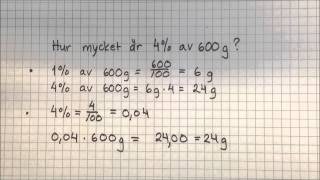 Hur mycket är 4% av 600g?
• 1% av 600g = 600/100 = 6g
4% av 600g = 6g · 4 = 24g
• 4% = 4/100 = 0,04
0,04 · 600g = 24,00 = 24g